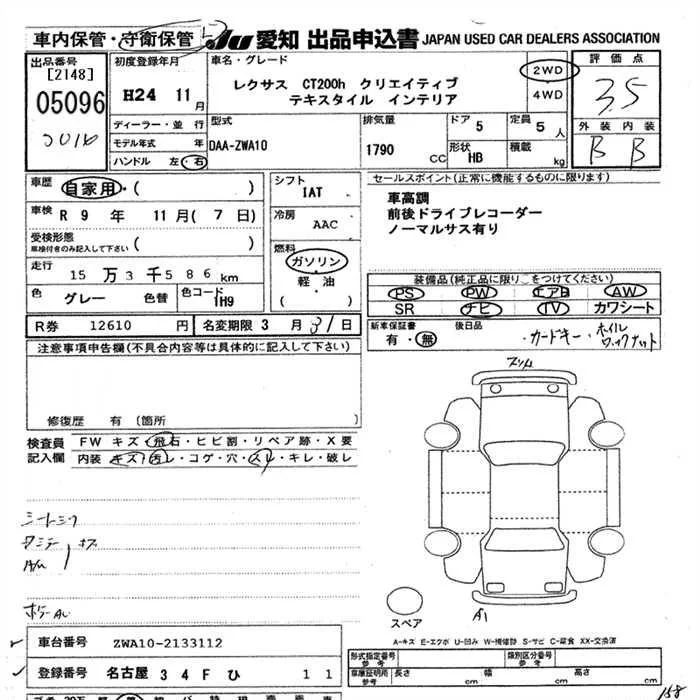 車内保管・守衛保管 JU 愛知 出品申込書 JAPAN USED CAR DEALERS ASSOCIATION
出品番号 [2148] 05096
初度登録年月 H24 11月
車名・グレード
レクサス CT200h クリエイティブ
テキスタイル インテリア
2WD
4WD
評価点 3.5
外装 内装
B B
ディーラー・並行
モデル年式 年
ハンドル 左・右
型式 DAA-ZWA10
排気量 1790 cc
ドア 5
定員 5人
形状 HB
積載 kg
車歴 自家用・( )
車検 R 9年 11月(7日)
受検形態 車検付きのみ記入して下さい ( )
走行 15万3千586km
色 グレー 色替
色コード 1H9
シフト IAT
冷房 AAC
燃料 ガソリン・軽油 ( )
セールスポイント(正常に機能するものに限ります)
車高調
前後ドライブレコーダー
ノーマルサス有り
PS PW エアB AW
SR ナビ TV カワシート
R券 12610円
名変期限 3月31日
新車保証書 有・無
後日品
・カードキー・ホイルロックナット
注意事項申告欄(不具合内容等は具体的に記入して下さい)
修復歴 有 (箇所 )
検査員記入欄
FW キズ・飛石・ヒビ割・リペア跡・X要
内装 キズ・汚レ・コゲ・穴・スレ・キレ・破レ
スペア
A1
A-キズ E-エクボ U-凹み W-補修跡 S-サビ C-腐食 XX-交換済
車台番号 ZWA10-2133112
登録番号 名古屋 34Fひ 11
形式指定番号 参考
類別区分番号 参考
車庫証明用 参考 長さ cm 幅 cm 高さ cm
158